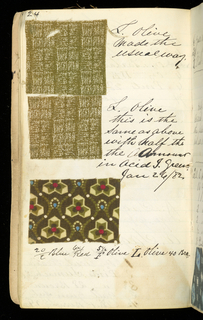 24
L. Olive
made the
usual way.
L. Olive
this is the
same as above
with half the
the Amount
in Acid I. Green
Jan 26/82.
Blue Red Olive L Olive 40